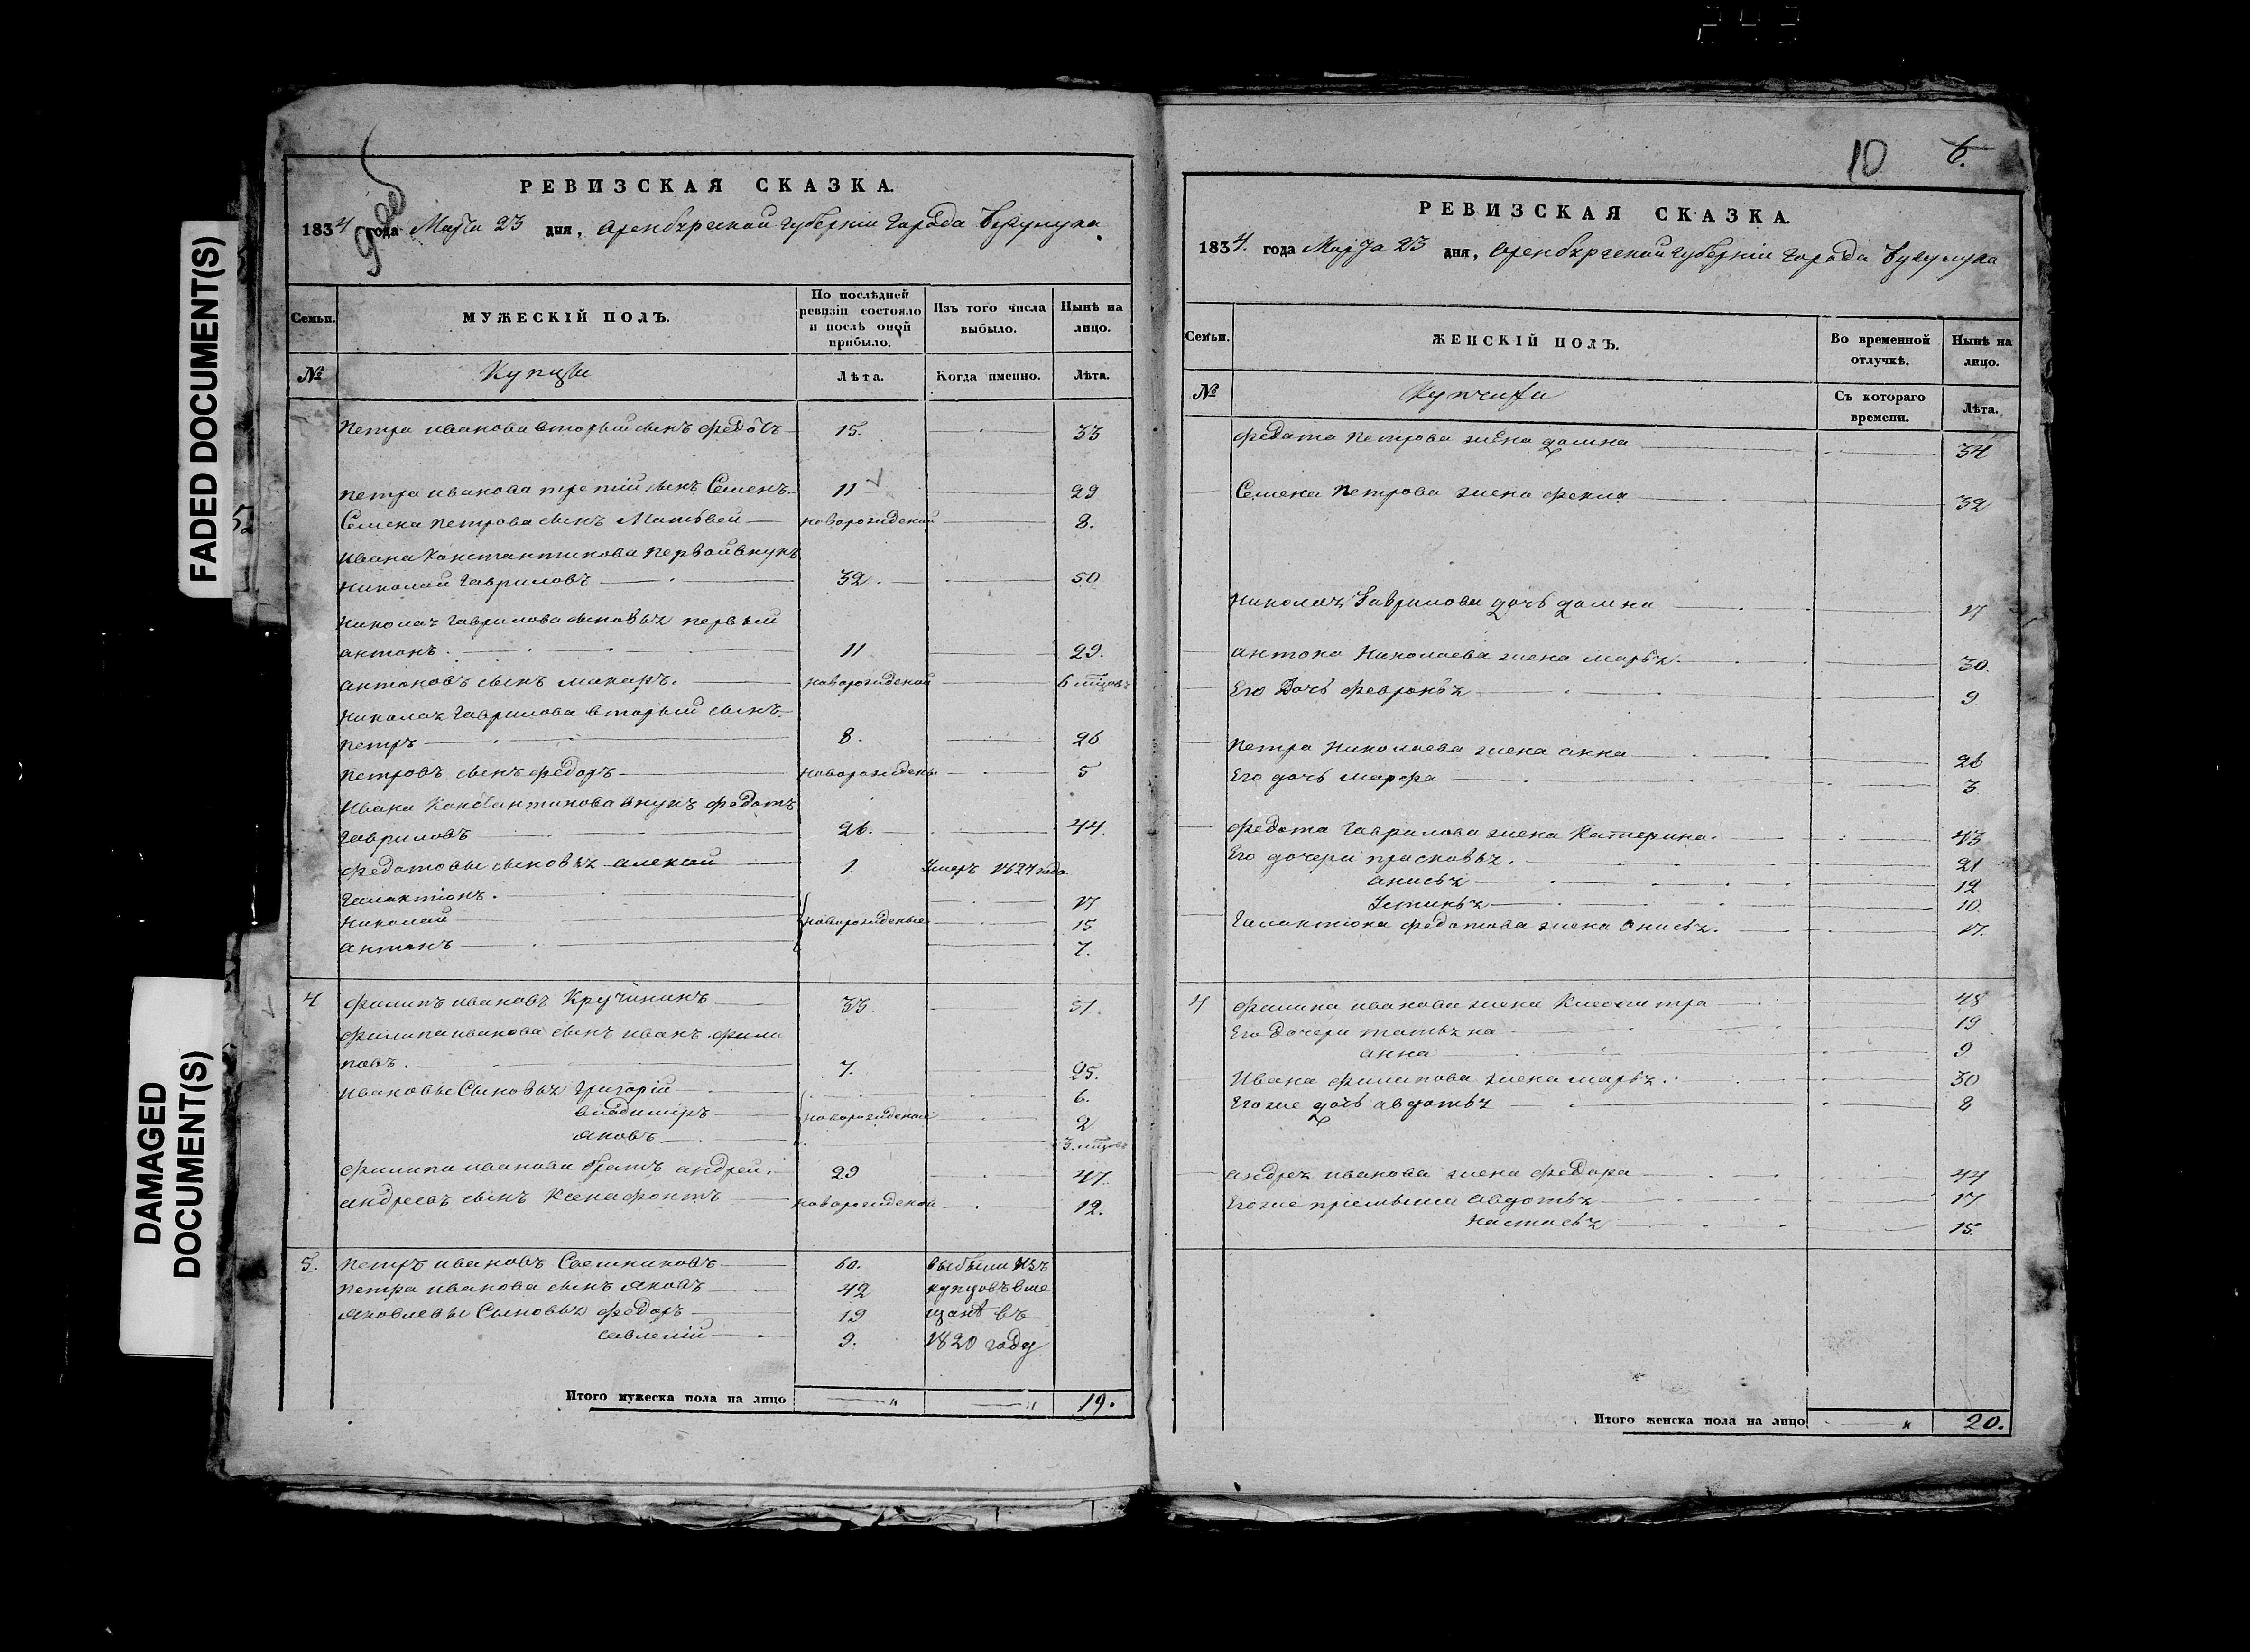 FADED DOCUMENT(S)
DAMAGED
DOCUMENT(S)
РЕВИЗСКАЯ СКАЗКА.
1834 года Марта 23 дня, Оренбургской губернии города
МУЖЕСКІЙ ПОЛЪ.
Семьи.
По послѣдней
ревизіи состояло
и послѣ оной
прибыло.
Изъ того числа
выбыло.
Нынѣ на
лицо.
№
Купцы
Лѣта.
Когда именно.
Лѣта.
Петра иванова вторый сынъ федотъ 15. 33
Петра иванова третій сынъ Семенъ 11 29
Семена петрова сынъ Матвей новорожденой 8.
Ивана Константинова первой внукъ
Николай Гавриловъ 32. 50
Николая Гаврилова сыновья первый
антонъ. 11 29.
антоновъ сынъ макаръ. новорожденой 6
Николая Гаврилова вторый сынъ
петръ 8. 26
петровъ сынъ федоръ новорожденой 5
Ивана Константинова внукъ федотъ
Гавриловъ 26. 44
федотовы сыновья алексей 1. Умеръ 1827 года
Галактіонъ. 17
Николай новорожденые 15
антонъ 7.
4 филипъ ивановъ Кручининъ 33. 51.
филипа иванова сынъ иванъ фили
повъ. 7. 25.
ивановы Сыновья григорій 6.
владимиръ новорожденой 2
яковъ 3.
филипа иванова братъ андрей. 29 47.
андреевъ сынъ Ксенофонтъ новорожденой 12.
5. Петръ ивановъ 60. выбыли изъ
Петра иванова сынъ яковъ 42 купцовъ вме
яковлевы Сыновья федоръ 19 щане въ
савелий 9. 1820 году
Итого мужеска пола на лицо 19.
10 6.
РЕВИЗСКАЯ СКАЗКА.
1834. года Марта 23 дня, Оренбургской губерніи города
Семьи.
ЖЕНСКІЙ ПОЛЪ.
Во временной
отлучкѣ.
Нынѣ на
лицо.
№
Купчихи
Съ котораго
времени.
Лѣта.
федота петрова жена домна 34
Семена петрова жена фекла 32
николая Гаврилова дочь домна 17
антона Николаева жена марья. 30
Его дочь февронья 9
Петра Николаева жена анна 26
Его дочь марфа 3
федота Гаврилова жена Катерина. 43
Его дочери прасковья. 21
анисья 12
Устинья 10
Галактіона федотова жена анисья. 17.
4 филипа иванова жена Клеопатра 48
Его Дочери татьяна 19
анна 9
Ивана филипова жена марья. 30
Его же дочь авдотья 8
андрея иванова жена федора 44
Его же авдотья 17
настасья 15.
Итого женска пола на лицо 20.